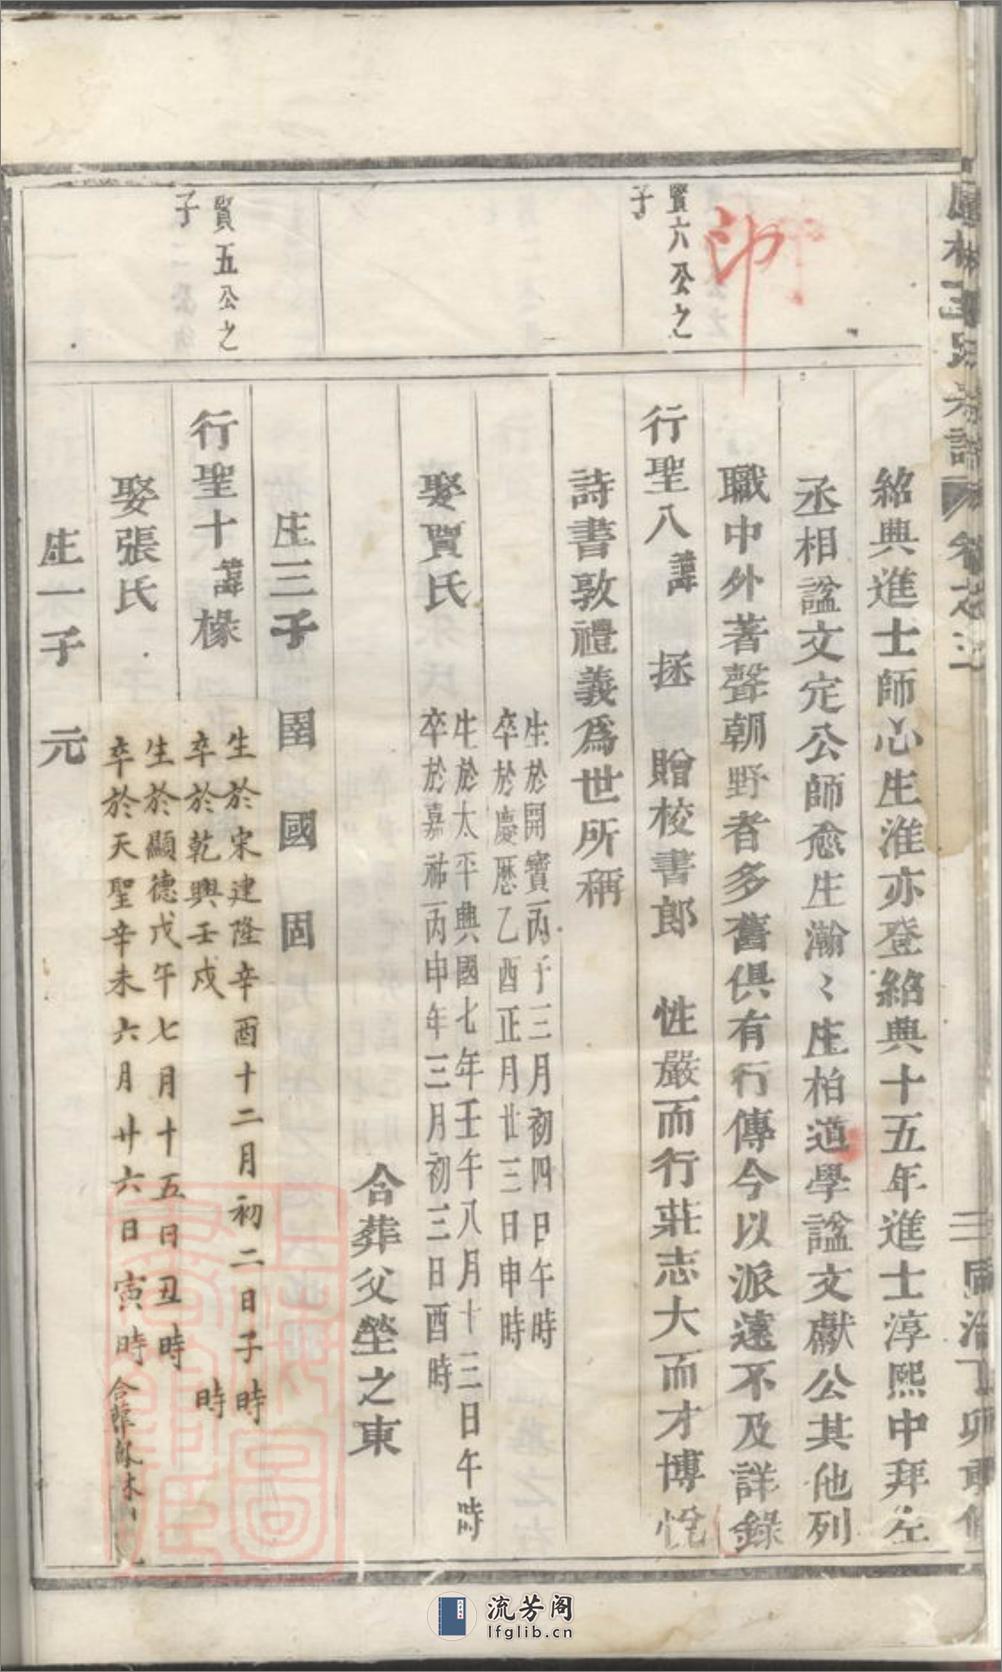 鳳林王氏宗譜 卷之 三 同治丁卯重修
紹興進士師心生淮亦登紹興十五年進士淳熙中拜左
丞相諡文定公師愈生瀚瀚〻庄柏道學諡文獻公其他列
職中外著聲朝野者多舊俱有行傳今以派遠不及詳錄
賢六公之子
行聖八 諱 拯 贈校書郎 性嚴而行莊志大而才博悅
詩書敦禮義為世所稱
生於開寶丙子三月初四日午時
卒於慶曆乙酉正月廿三日申時
娶賈氏
生於太平興國七年壬午八月十三日午時
卒於嘉祐丙申年三月初三日酉時
合葬父塋之東
庄三子 圉 國 固
賢五公之子
行聖十 諱 椽
生於宋建隆辛酉十二月初二日子時
卒於乾興壬戌 時
娶張氏
生於顯德戊午七月十五日丑時
卒於天聖辛未六月廿六日寅時 合葬鳳林
庄一子 元
印
流芳阁
lfglib.cn